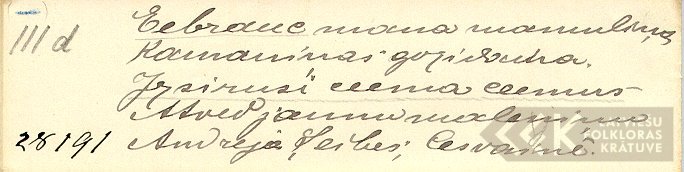 III d
Eebrauc mana mamuliņa
Kamaniņas
Izsirusi ciema ciemus
Atved jaunu maļejiņu.
28191 Andrejs Cesvainē.
LATVIEŠU
FOLKLORAS
KRĀTUVE